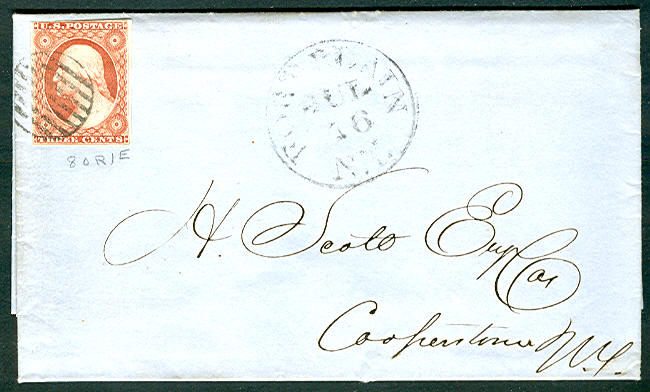 U.S. POSTAGE
THREE CENTS
80R1E
FORT PLAIN
JUL
16
N.Y.
H. Scott Esq Cas
Cooperstown N.Y.